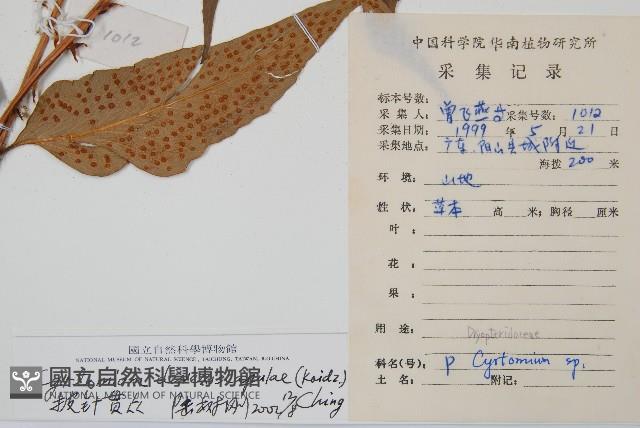 1012
中国科学院华南植物研究所
采集记录
标本号数:
采集人: 曾飞燕 采集号数: 1012
采集日期: 1999 年 5 月 21 日
采集地点: 广东.阳山县城附近
海拔 200 米
环境: 山地
性状: 草本 高 米; 胸径 厘米
叶:
花:
果:
用途: Dryopteridaceae
科名(号): P Cyrtomium sp.
土名: 附记:
國立自然科學博物館
NATIONAL MUSEUM OF NATURAL SCIENCE, TAICHUNG, TAIWAN, REP.CHINA
(Koidz.)
國立自然科學博物館
NATIONAL MUSEUM OF NATURAL SCIENCE
披针贯众 2002 Ching